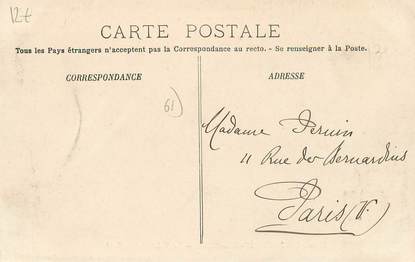 12t
CARTE POSTALE
Tous les Pays étrangers n'acceptent pas la Correspondance au recto. - Se renseigner à la Poste.
CORRESPONDANCE
ADRESSE
61)
Madame
11 Rue des Bernardins
Paris (V.)